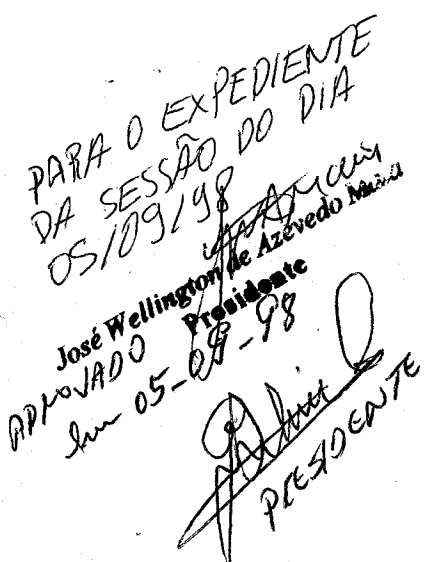 PARA O EXPEDIENTE
DA SESSÃO DO DIA
05/09/98
José Wellington de Azevedo
Presidente
APROVADO
Em 05-09-98
PRESIDENTE